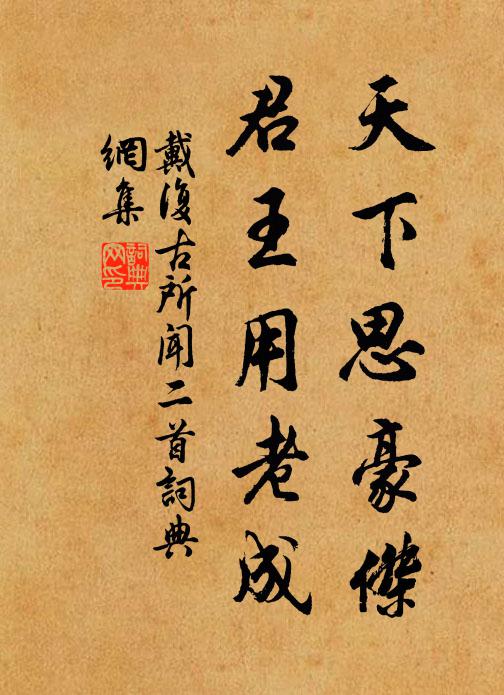 天下思豪傑
君王用老成
戴復古所聞二首詞典
網集
詞典网印